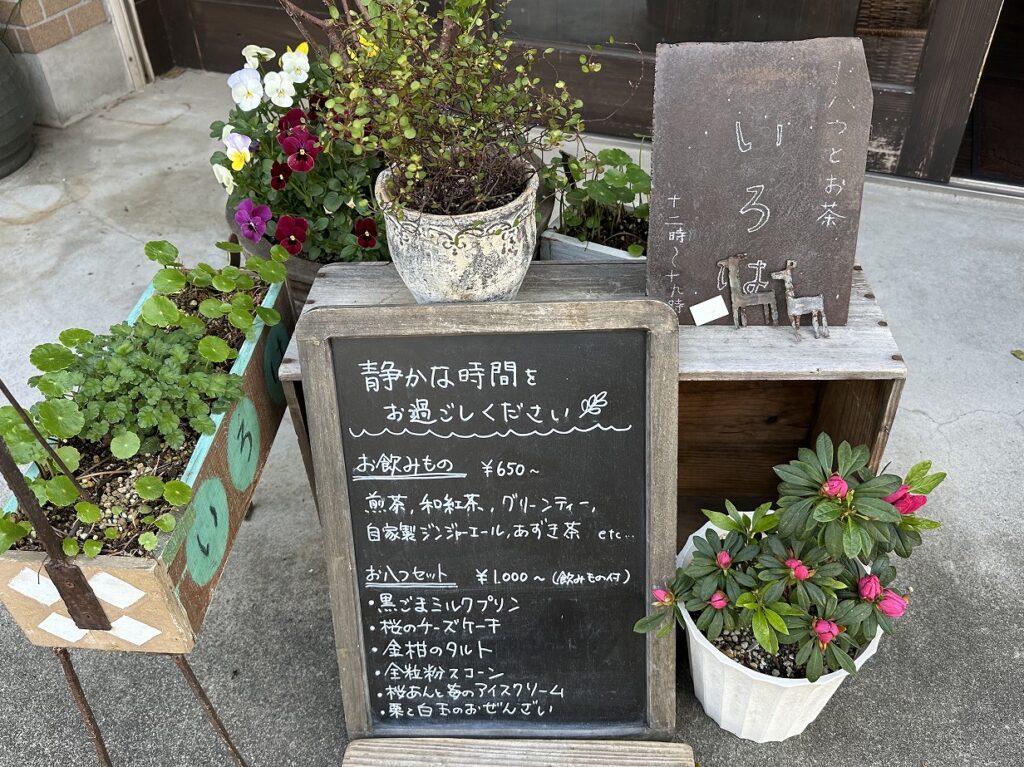 うつわとお茶
いろは
十二時〜十九時
い
ろ
静かな時間を
お過ごしください
お飲みもの ¥650~
煎茶, 和紅茶, グリーンティー,
自家製ジンジャーエール, あずき茶 etc...
お八つセット ¥1.000~ (飲みもの付)
・黒ごまミルクプリン
・桜のチーズケーキ
・金柑のタルト
・全粒粉スコーン
・桜あんと苺のアイスクリーム
・栗と白玉のおぜんざい